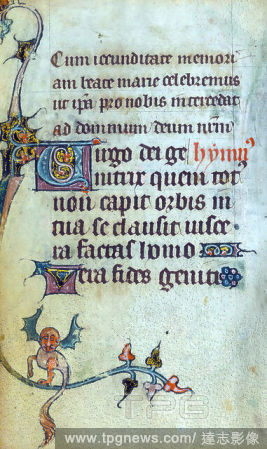 Cum iocunditate memori
am beate marie celebremus
ut ip̄a pro nobis intercedat
ad dominum deum nr̄m
Virgo dei ge hymnꝰ
nitrix quem tot
non capit orbis in
tua se clausit visce
ra factus homo
Vera fides geniti
TPG
www.tpgnews.com/ 達志影像